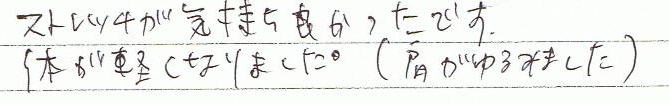 ストレッチが気持ち良かったです.
体が軽くなりました。(肩がゆるみました)